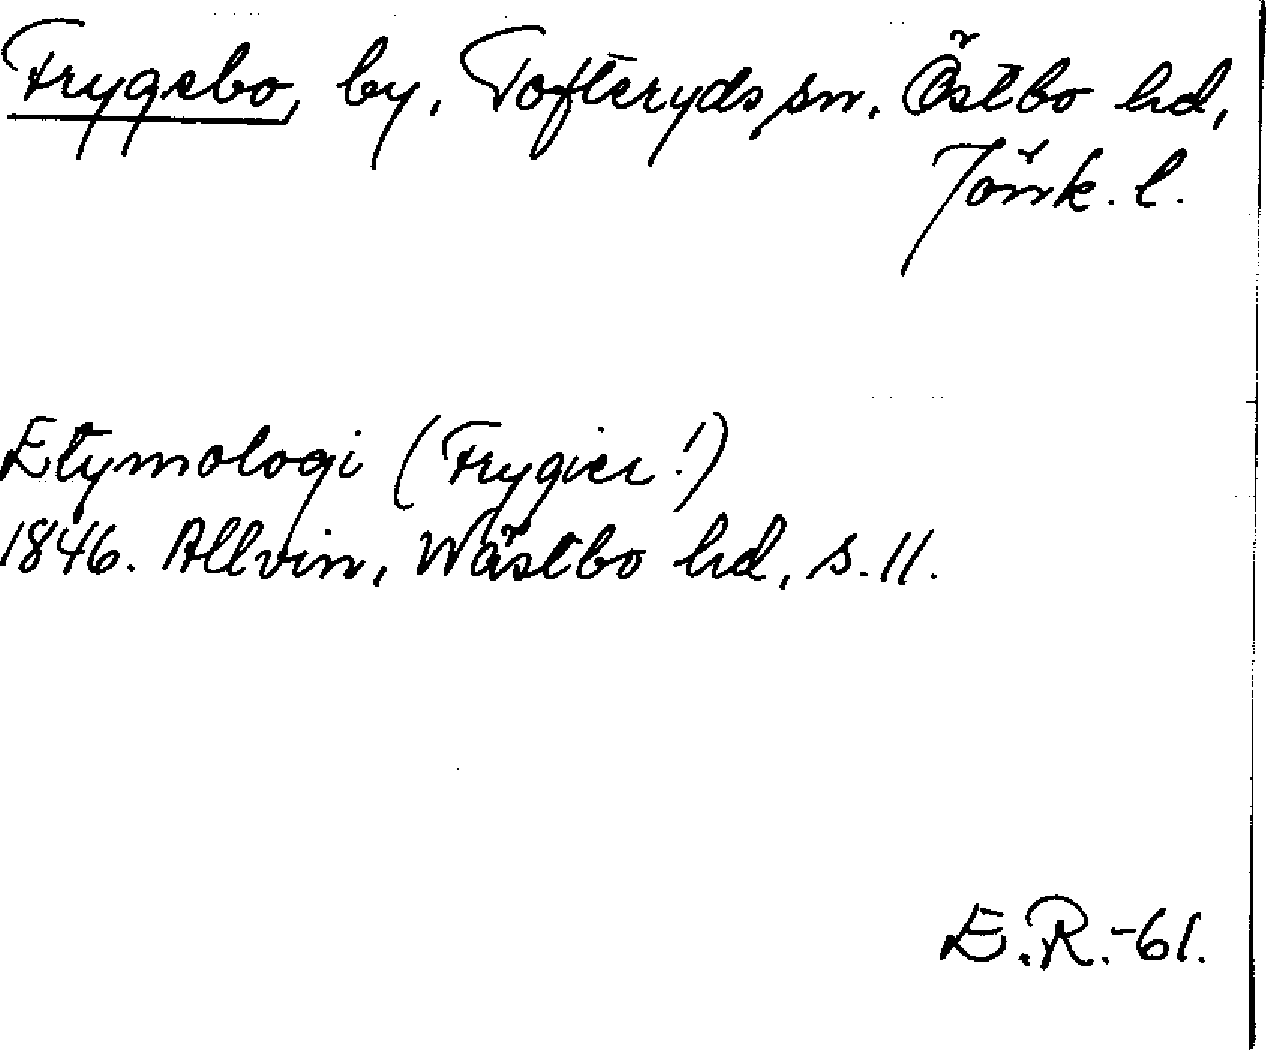 Frygebo, by, Tofteryds sn. Östbo hd,
Jönk. l.
Etymologi (Frygier!)
1846. Allvin, Wästbo hd, s. 11.
E.R.-61.